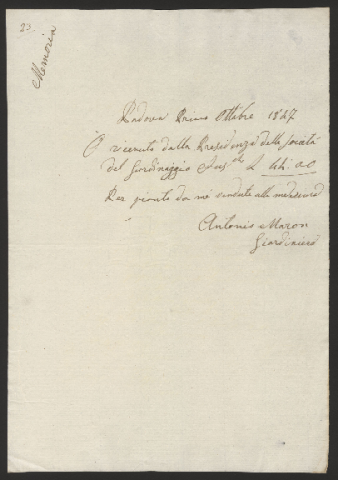 23.
Memoria
Padova Primo Ottobre 1847
O riceuto dalla Presidenza della Società
del Giardinaggio Aus.che L 44: 00
Per piante da me vendute alla medesima
Antonio Maron
Giardiniere